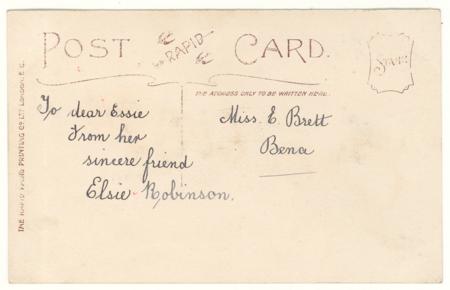 POST CARD.
RAPID
STAMP.
THE ADDRESS ONLY TO BE WRITTEN HERE.
To dear Essie
From her
sincere friend
Elsie Robinson.
Miss. E. Brett
Bena
THE RAPID PHOTO PRINTING CO LTD LONDON. E.C.